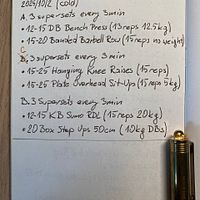 2025/10/2 (Cold)
A. 3 supersets every 3min
• 12-15 DB Bench Press (13reps 12.5kg)
• 15-20 Banded Barbell Row (15reps no weight)
C
B. 3 supersets every 3 min
• 15-25 Hanging Knee Raises (15reps)
• 15-25 Plate Overhead Sit-Ups (15reps 5kg)
B. 3 Supersets every 3min
• 12-15 KB Sumo RDL (15reps 20kg)
• 20 Box Step Ups 50cm (10kg DBs)